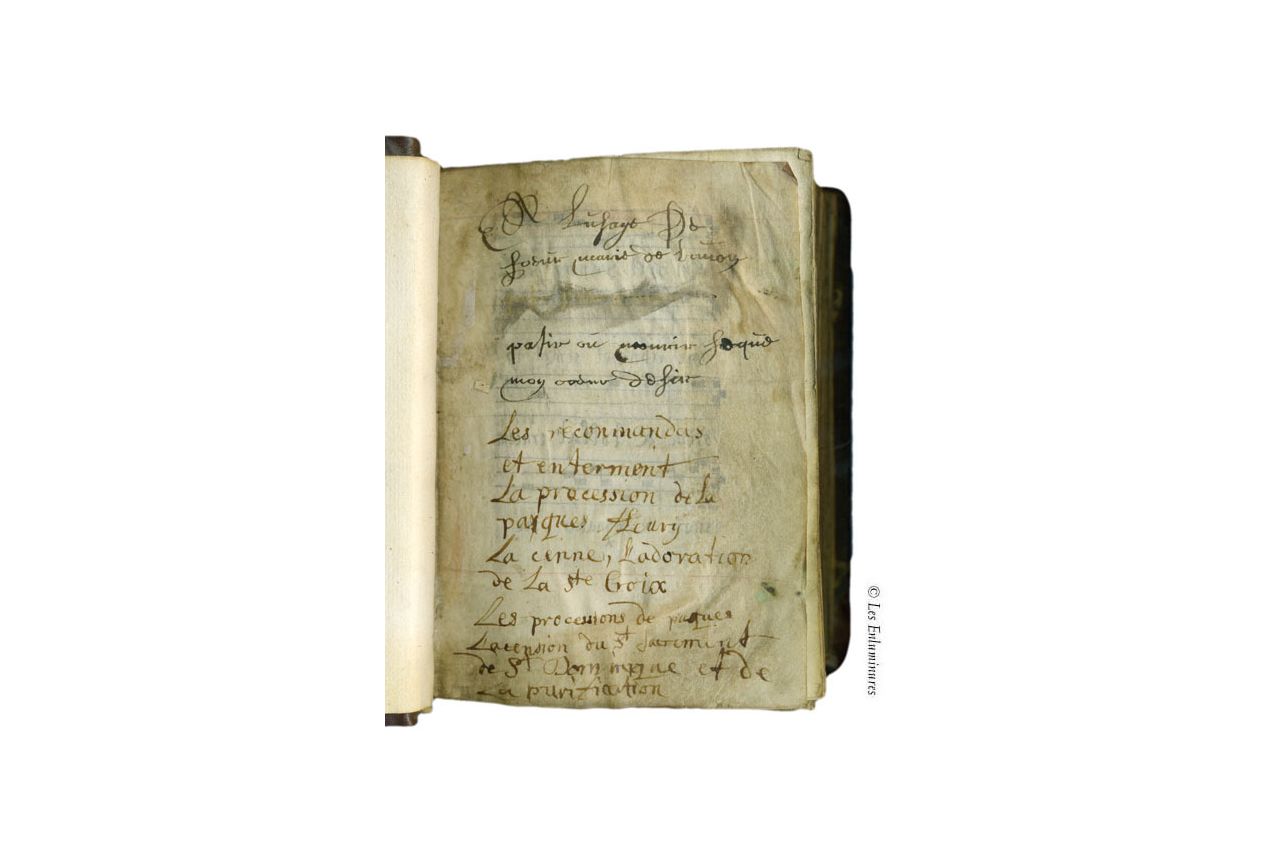 A Lusage De
soeur marie de
pasir ou mourir se que
mon coeur desir
Les recommandas
et enterment
La procession de la
pasques fleury
La cenne, L'adoration
de La ste Croix
Les processions de pasques
Lacension du st sacrement
de St Dominique et de
La purification
© Les Enluminures